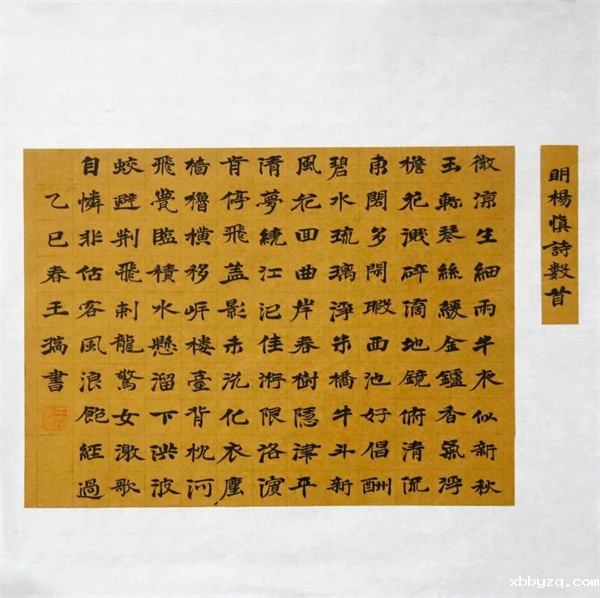 明楊慎詩數首
微涼生細雨半夜似新秋
玉軫琴絲緩金鑪香氣浮
檐花濺碎滴地鏡俯清流
東閣多閑暇西池好倡酬
碧水琉璃淨朱橋牛斗新
風花回曲岸春樹隱津平
清夢繞江汜佳游限洛濱
肯停飛蓋影未洗化衣塵
檣櫓橫移岸樓臺背枕河
飛甍臨積水懸溜下洪波
蛟避荆飛刺龍驚女激歌
自憐非估客風浪飽經過
乙巳春王瑞書
xbbyzq.com